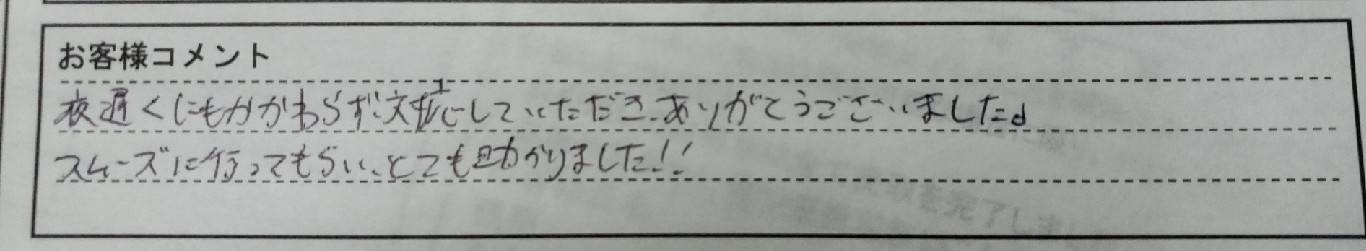 お客様コメント
夜遅くにもかかわらず、対応していただき、ありがとうございました。
スムーズに行ってもらい、とても助かりました!!
を完了しまし